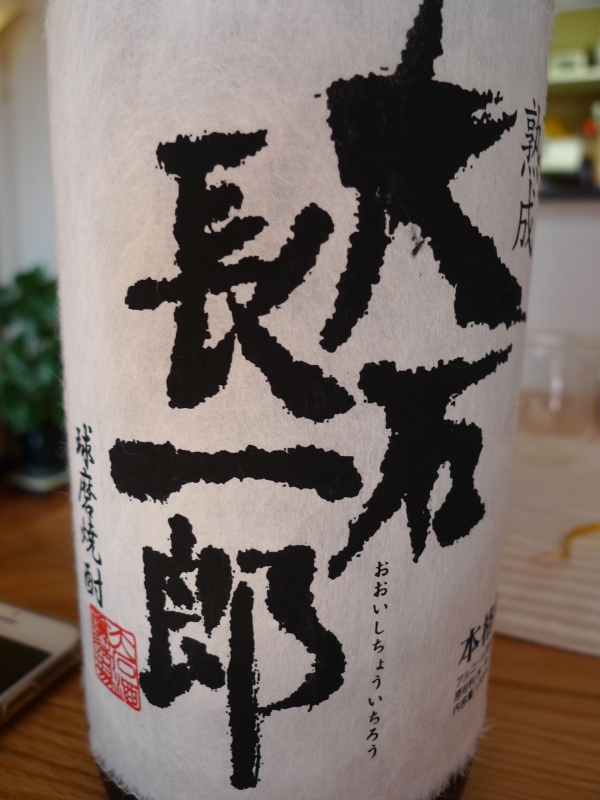 熟成
大石
長一郎
おおいしちょういちろう
球磨焼酎
本格